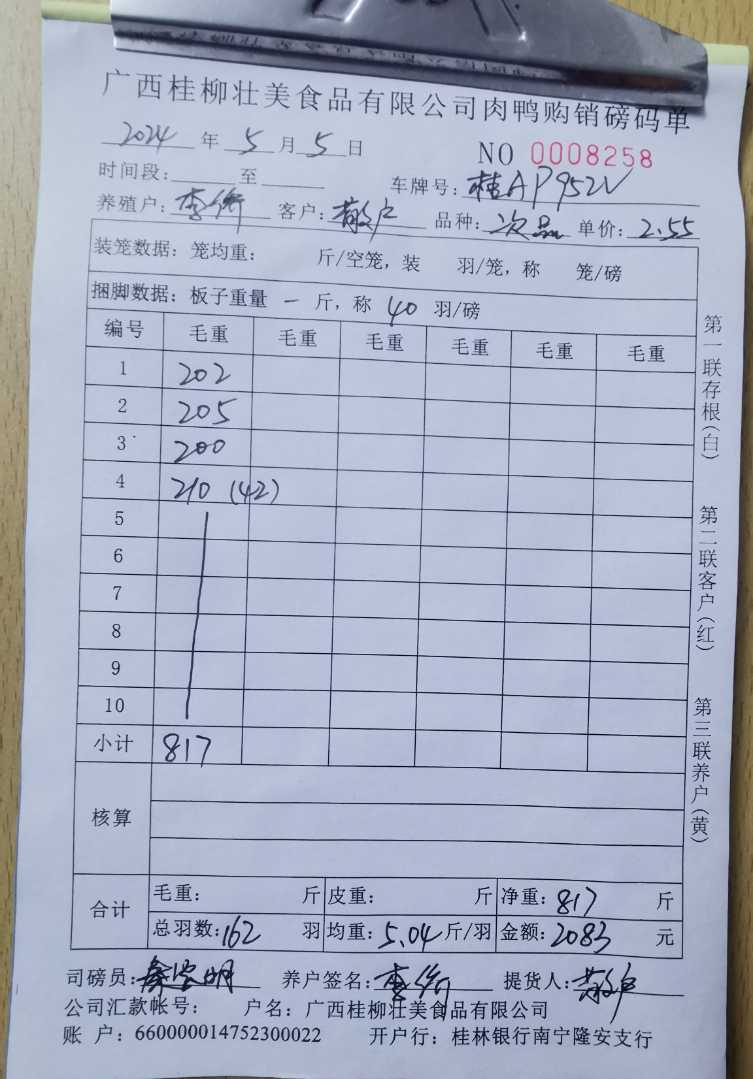 广西桂柳壮美食品有限公司肉鸭购销磅码单
2024 年 5 月 5 日 NO 0008258
时间段: 至 车牌号: 桂AP952V
养殖户: 李衡 客户: 散户 品种: 次品 单价: 2.55
装笼数据: 笼均重: 斤/空笼, 装 羽/笼, 称 笼/磅
捆脚数据: 板子重量 一 斤, 称 40 羽/磅
编号 毛重 毛重 毛重 毛重 毛重 毛重
1 202
2 205
3 200
4 210 (42)
5
6
7
8
9
10
小计 817
核算
合计 毛重: 斤 皮重: 斤 净重: 817 斤
总羽数: 162 羽 均重: 5.04 斤/羽 金额: 2083 元
司磅员: 养户签名: 李衡 提货人: 散户
公司汇款帐号: 户名: 广西桂柳壮美食品有限公司
账 户: 660000014752300022 开户行: 桂林银行南宁隆安支行
第一联存根(白)
第二联客户(红)
第三联养户(黄)